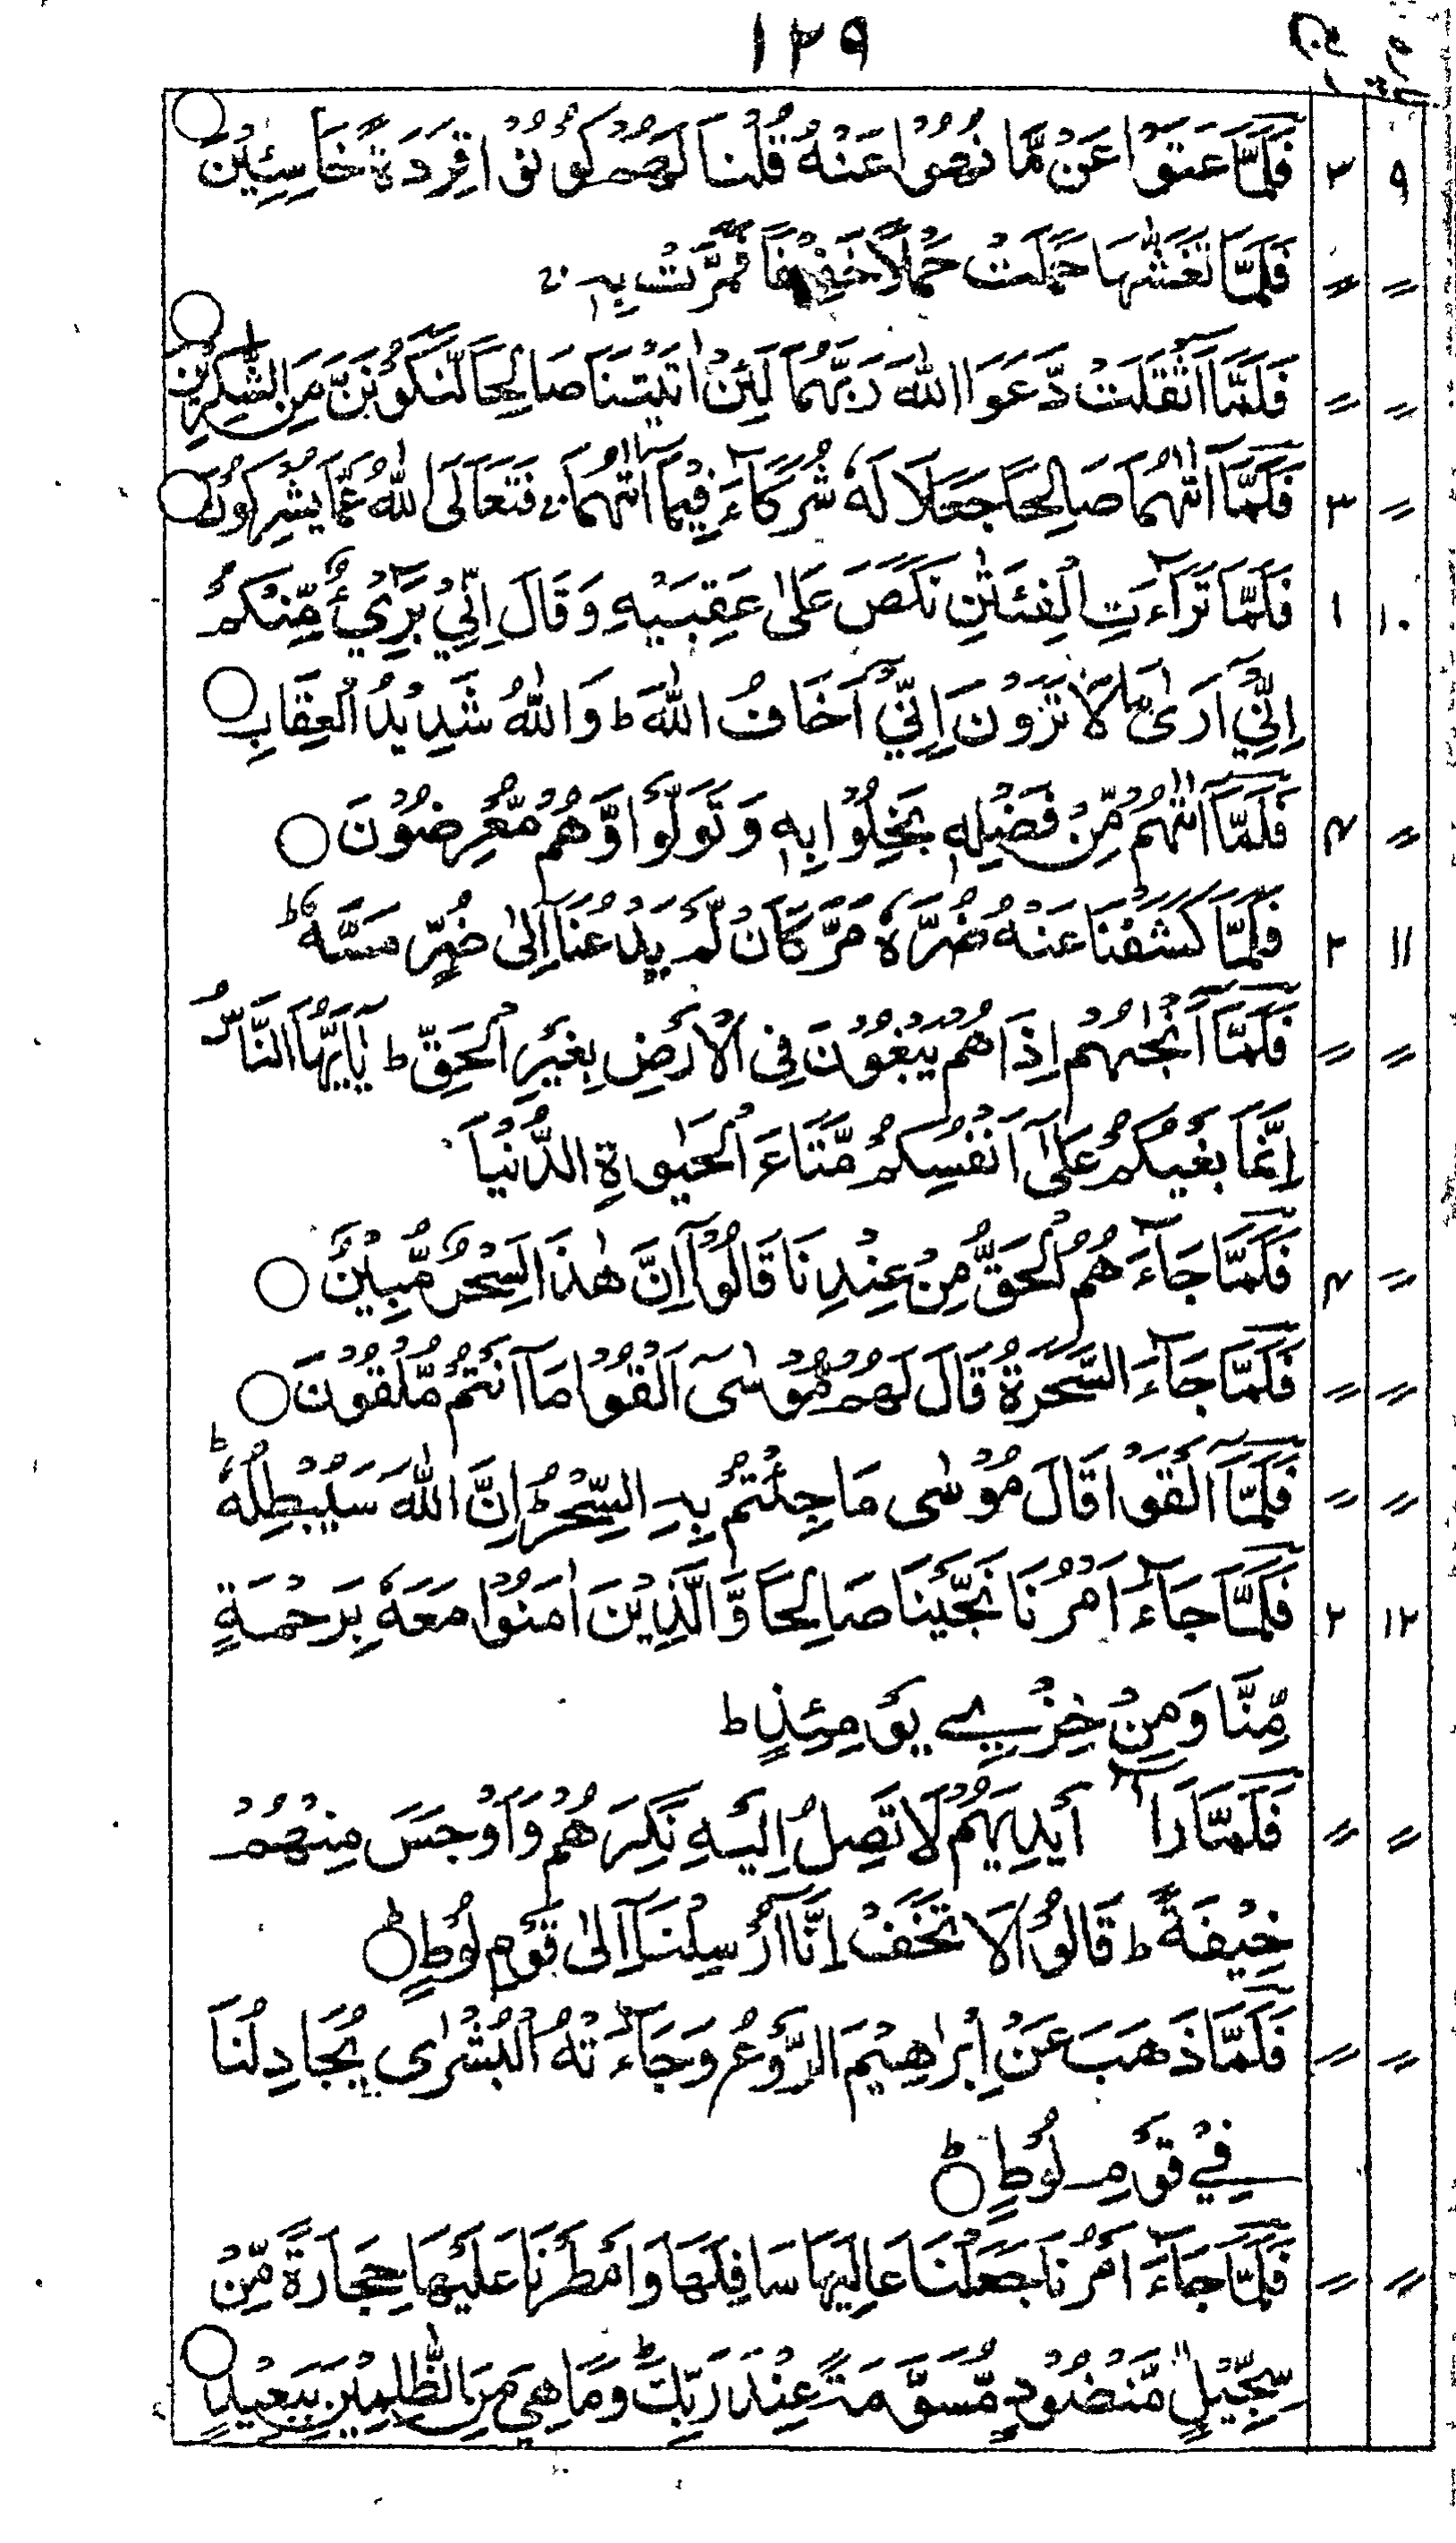 ١٢٩
٩ ٢ فَلَمَّا عَتَوْا عَنْ مَّا نُهُوْا عَنْهُ قُلْنَا لَهُمْ كُوْنُوْا قِرَدَةً خَاسِئِيْنَ ○
〃 〃 فَلَمَّا تَغَشّٰهَا حَمَلَتْ حَمْلًا خَفِيْفًا فَمَرَّتْ بِهٖ ج
〃 〃 فَلَمَّا اَثْقَلَتْ دَّعَوَا اللّٰهَ رَبَّهُمَا لَئِنْ اٰتَيْتَنَا صَالِحًا لَّنَكُوْنَنَّ مِنَ الشّٰكِرِيْنَ ○
〃 ٣ فَلَمَّا اٰتٰهُمَا صَالِحًا جَعَلَا لَهٗ شُرَكَآءَ فِيْمَا اٰتٰهُمَا ج فَتَعٰلَى اللّٰهُ عَمَّا يُشْرِكُوْنَ ○
١٠ ١ فَلَمَّا تَرَآءَتِ الْفِئَتٰنِ نَكَصَ عَلٰى عَقِبَيْهِ وَقَالَ اِنِّيْ بَرِيْٓءٌ مِّنْكُمْ
اِنِّيْٓ اَرٰى مَا لَا تَرَوْنَ اِنِّيْٓ اَخَافُ اللّٰهَ ط وَاللّٰهُ شَدِيْدُ الْعِقَابِ ○
〃 ٤ فَلَمَّآ اٰتٰهُمْ مِّنْ فَضْلِهٖ بَخِلُوْا بِهٖ وَتَوَلَّوْا وَّهُمْ مُّعْرِضُوْنَ ○
١١ ٢ فَلَمَّا كَشَفْنَا عَنْهُ ضُرَّهٗ مَرَّ كَاَنْ لَّمْ يَدْعُنَآ اِلٰى ضُرٍّ مَّسَّهٗ ط
〃 〃 فَلَمَّآ اَنْجٰهُمْ اِذَا هُمْ يَبْغُوْنَ فِى الْاَرْضِ بِغَيْرِ الْحَقِّ ط يٰٓاَيُّهَا النَّاسُ
اِنَّمَا بَغْيُكُمْ عَلٰٓى اَنْفُسِكُمْ مَّتَاعَ الْحَيٰوةِ الدُّنْيَا
〃 ٤ فَلَمَّا جَآءَهُمُ الْحَقُّ مِنْ عِنْدِنَا قَالُوْٓا اِنَّ هٰذَا لَسِحْرٌ مُّبِيْنٌ ○
〃 〃 فَلَمَّا جَآءَ السَّحَرَةُ قَالَ لَهُمْ مُّوْسٰىٓ اَلْقُوْا مَآ اَنْتُمْ مُّلْقُوْنَ ○
〃 〃 فَلَمَّآ اَلْقَوْا قَالَ مُوْسٰى مَا جِئْتُمْ بِهِ السِّحْرُ ط اِنَّ اللّٰهَ سَيُبْطِلُهٗ ط
١٢ ٢ فَلَمَّا جَآءَ اَمْرُنَا نَجَّيْنَا صَالِحًا وَّالَّذِيْنَ اٰمَنُوْا مَعَهٗ بِرَحْمَةٍ
مِّنَّا وَمِنْ خِزْيِ يَوْمِئِذٍ ط
〃 〃 فَلَمَّا رَآٰ اَيْدِيَهُمْ لَا تَصِلُ اِلَيْهِ نَكِرَهُمْ وَاَوْجَسَ مِنْهُمْ
خِيْفَةً ط قَالُوْا لَا تَخَفْ اِنَّآ اُرْسِلْنَآ اِلٰى قَوْمِ لُوْطٍ ○ ط
〃 〃 فَلَمَّا ذَهَبَ عَنْ اِبْرٰهِيْمَ الرَّوْعُ وَجَآءَتْهُ الْبُشْرٰى يُجَادِلُنَا
فِيْ قَوْمِ لُوْطٍ ○ ط
〃 〃 فَلَمَّا جَآءَ اَمْرُنَا جَعَلْنَا عَالِيَهَا سَافِلَهَا وَاَمْطَرْنَا عَلَيْهَا حِجَارَةً مِّنْ
سِجِّيْلٍ مَّنْضُوْدٍ مُّسَوَّمَةً عِنْدَ رَبِّكَ ط وَمَا هِيَ مِنَ الظّٰلِمِيْنَ بِبَعِيْدٍ ○